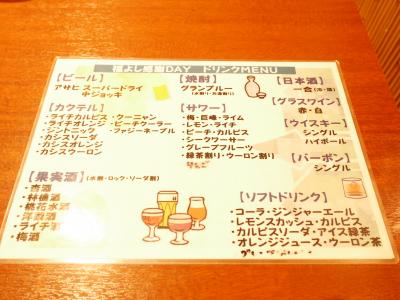 福よし感謝DAY ドリンクMENU
【ビール】
アサヒ スーパードライ
中ジョッキ
【カクテル】
・ライチカルピス・クーニャン
・ライチオレンジ・ピーチクーラー
・ジントニック ・ファジーネーブル
・カシスソーダ
・カシスオレンジ
・カシスウーロン
【果実酒】(水割・ロック・ソーダ割)
・杏酒
・林檎酒
・桃花水酒
・洋酒酒
・ライチ酒
・梅酒
【焼酎】
グランブルー
(水割り・お湯割り)
【サワー】
・梅・巨峰・ライム
・レモン・ライチ
・ピーチ・カルピス
・シークワーサー
・グレープフルーツ
・緑茶割り・ウーロン割り
【日本酒】
一合(冷・燗)
【グラスワイン】
赤・白
【ウイスキー】
シングル
ハイボール
【バーボン】
シングル
【ソフトドリンク】
・コーラ・ジンジャーエール
・レモンスカッシュ・カルピス
・カルピスソーダ・アイス緑茶
・オレンジジュース・ウーロン茶